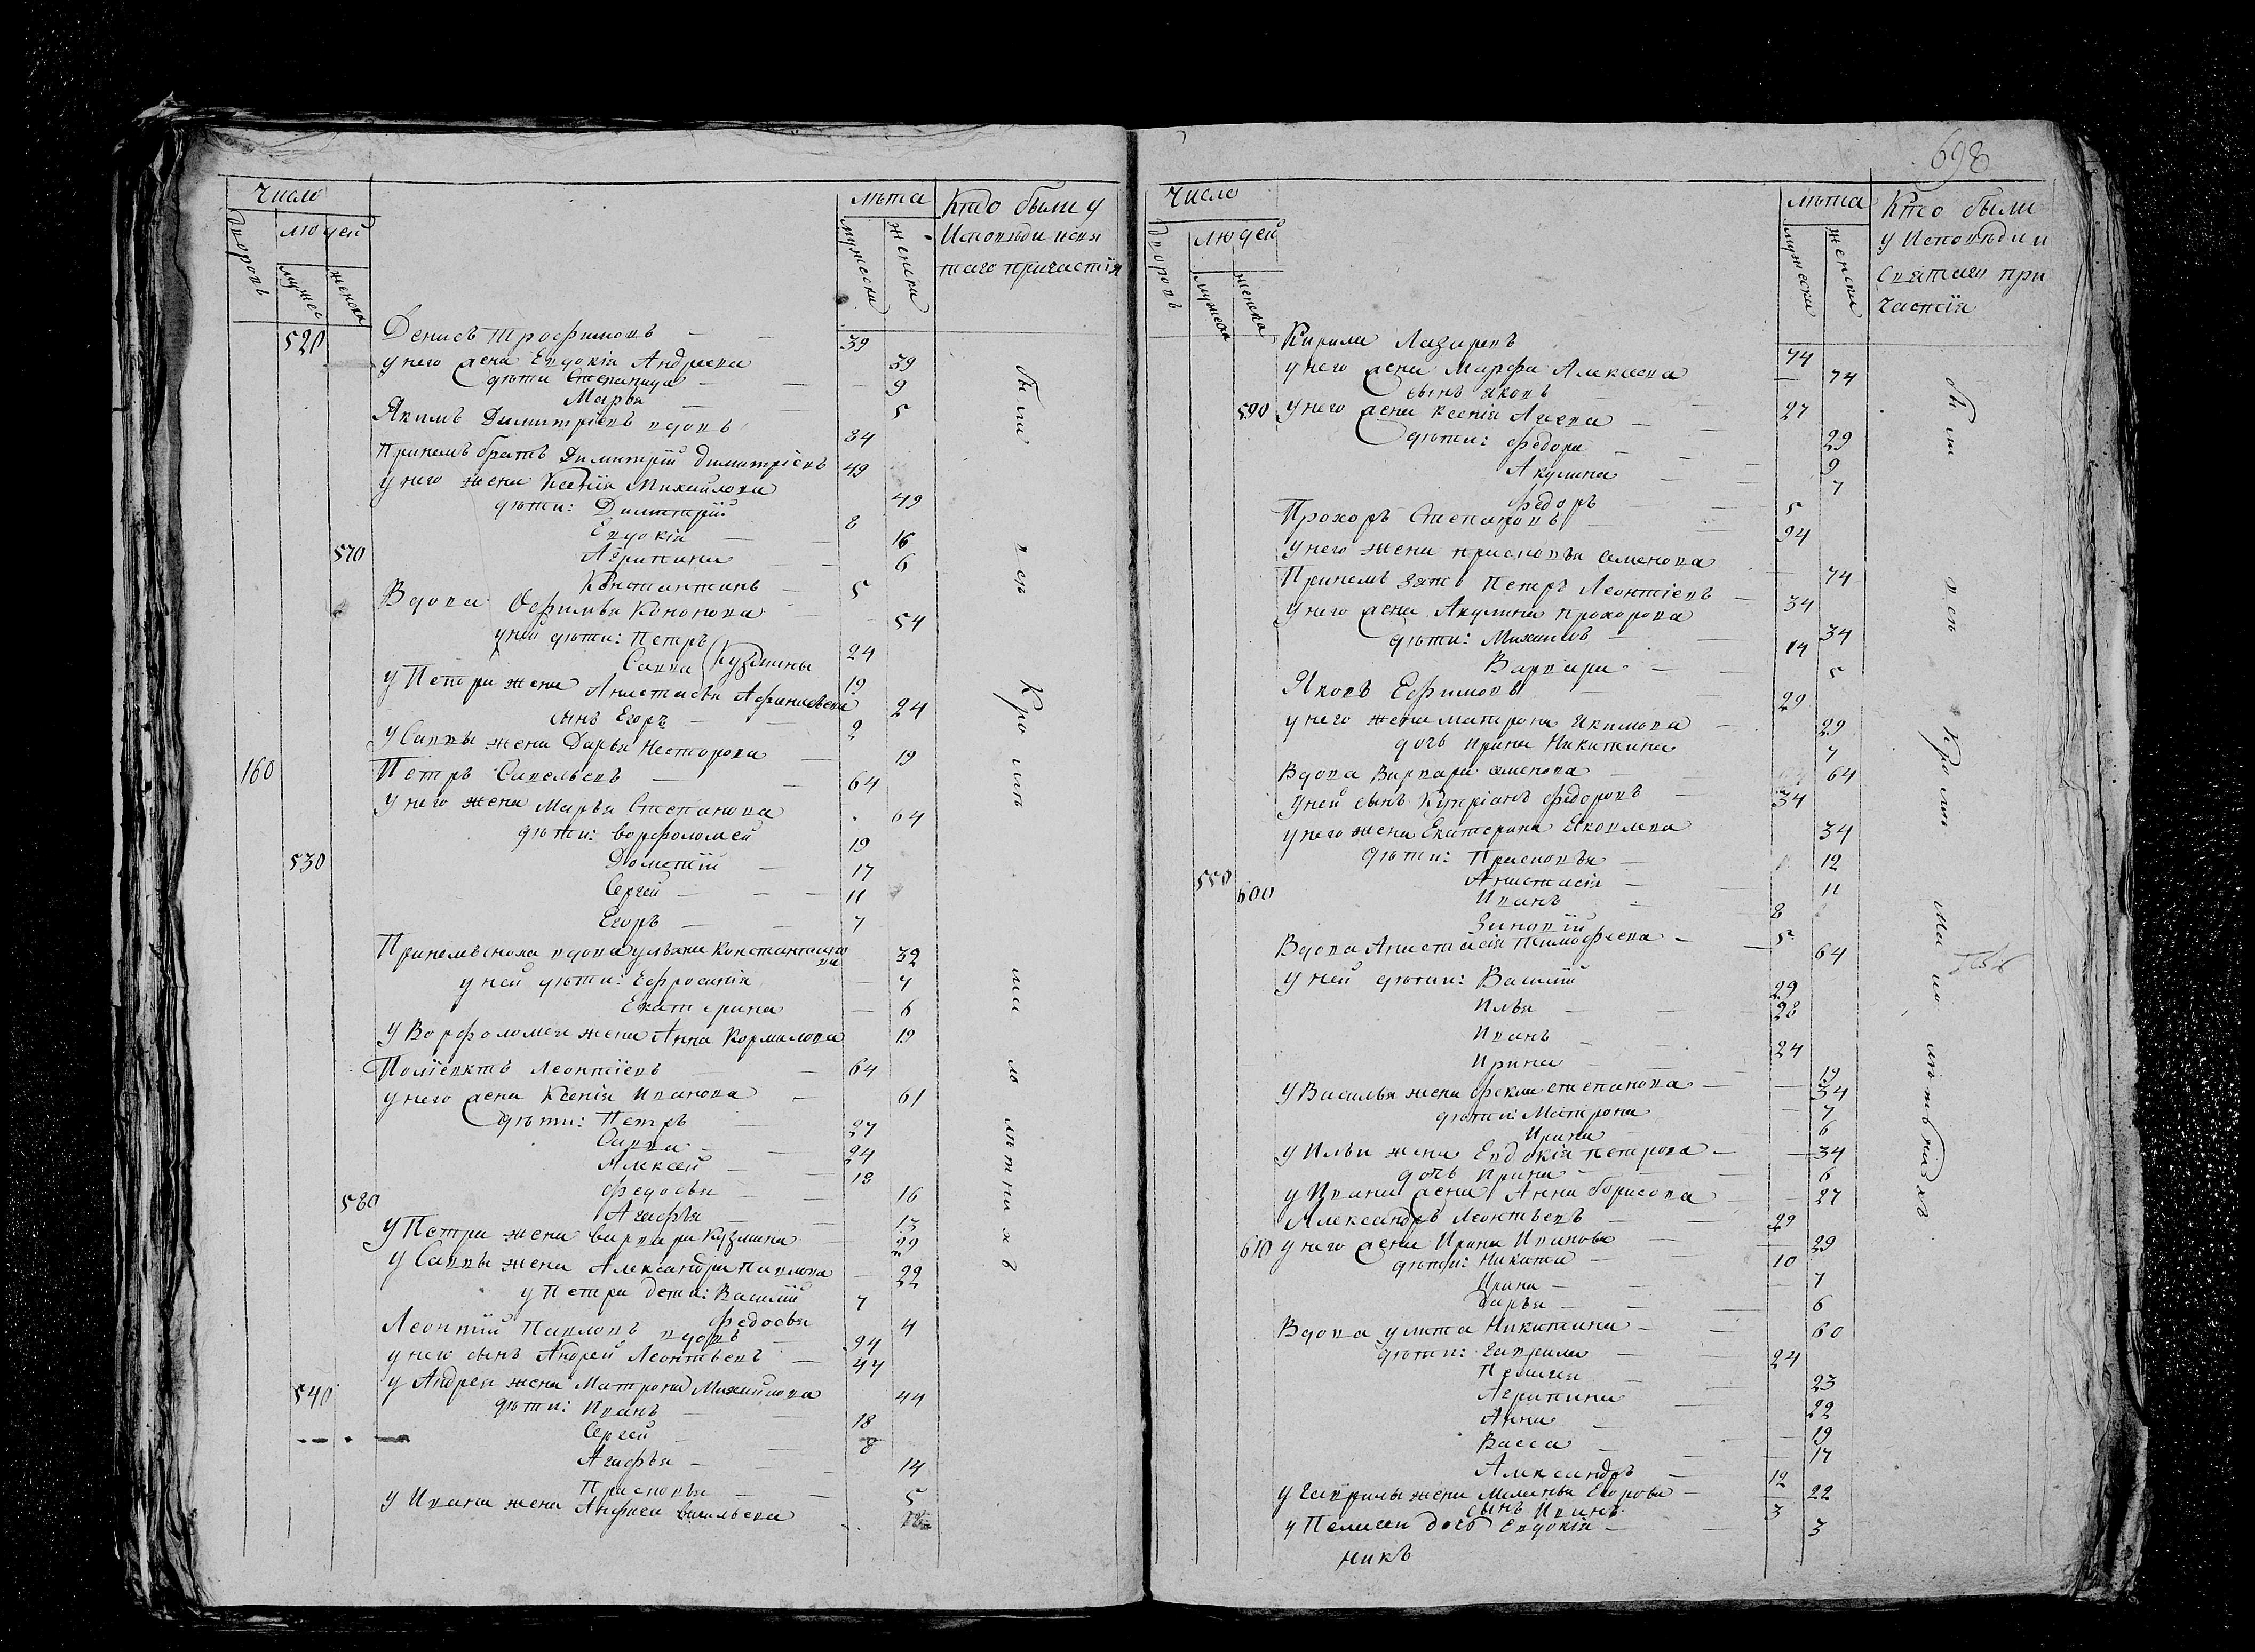 Число
людей
дворовъ
мужес
женска
лѣта
мужески
женски
Кто были у
Исповѣди и свя
таго причастія
520 Денисъ Трофимовъ 39
у него жена Евдокія Андреева 39
дѣти Степанида 9
Марья 5
Якимъ Димитріевъ вдовъ 34
При немъ братъ Димитрій Димитріевъ 49
у него жена Ксенія Михайлова 49
дѣти: Димитрій 8
Евдокія 16
570 Агрипина 6
Константинъ 5
Вдова Офимья Кононова 54
у ней дѣти: Петръ 24
Савва Кузмины 19
у Петра жена Анастасья Афанасьева 24
сынъ Егоръ 2
у Саввы жена Дарья Нестерова 19
160 Петръ Савельевъ 64
у него жена Марья Степанова 64
дѣти: Ворфоломей 19
530 Дометій 17
Сергей 11
Егоръ 7
При немъ сноха вдова Ульяна Константино
ва 32
у ней дѣти: Ефросинія 7
Екатерина 6
у Ворфоломея жена Анна Кормилова 19
Поліевктъ Леонтіевъ 64
у него жена Ксенія Иванова 61
дѣти: Петръ 27
Савва 24
Алексей 18
Федосья 16
580 Агафья 13
у Петра жена Варвара Кузмина 29
у Саввы жена Александра Павлова 22
у Петра дети: Василій 7
Федосья 4
Леонтій Павловъ вдовъ 94
у него сынъ Андрей Леонтьевъ 44
у Андрея жена Матрона Михайлова 44
540 дѣти: Иванъ 18
Сергей 8
Агафья 14
Прасковья 5
у Ивана жена Анфиса Васильева
были
всѣ
Кромѣ
малолѣтнихъ
698
Число
людей
дворовъ
мужеск
женска
лѣта
мужески
женски
Кто были
у Исповѣди и
Святаго при
частія
Кирила Лазаревъ 74
у него жена Марфа Алексева 74
сынъ Яковъ 27
590 у него жена Ксенія Агеева 29
дѣти: Федора 9
Акулина 7
Федоръ 5
Прохоръ Степановъ 94
у него жена Прасковья Семенова 74
При немъ зять Петръ Леонтіевъ 34
у него жена Акулина Прохорова 34
дѣти: Михаилъ 14
Варвара 5
Яковъ Ефимовъ 29
у него жена Матрона Якимова 29
дочь Ирина Никитина 7
Вдова Варвара Семенова 64
у ней сынъ Купріанъ Федоровъ 34
у него жена Екатерина Яковлева 34
дѣти: Прасковья 12
550 600 Анастасія 11
Иванъ 8
Зиновій 5
Вдова Анастасія Тимофеева 64
у ней дѣти: Василій 29
Илья 28
Иванъ 24
Ирина 19
у Василья жена Фекла Степанова 34
дѣти: Матрона 7
Ирина 6
у Ильи жена Евдокія Петрова 34
дочь Ирина 6
у Ивана жена Анна Борисова 27
Александръ Леонтьевъ 29
610 у него жена Ирина Иванова 29
дѣти: Никита 10
Ирина 7
Дарья 6
Вдова Улита Никитина 60
дѣти: Гаврила 24
Пелагея 23
Агрипина 22
Анна 19
Васса 17
Александръ 12
у Гаврилы жена Меланья Егорова 22
сынъ Иванъ 3
у Пелагеи дочь Евдокія 3
никъ
были
всѣ
Кромѣ
малолѣтныхъ